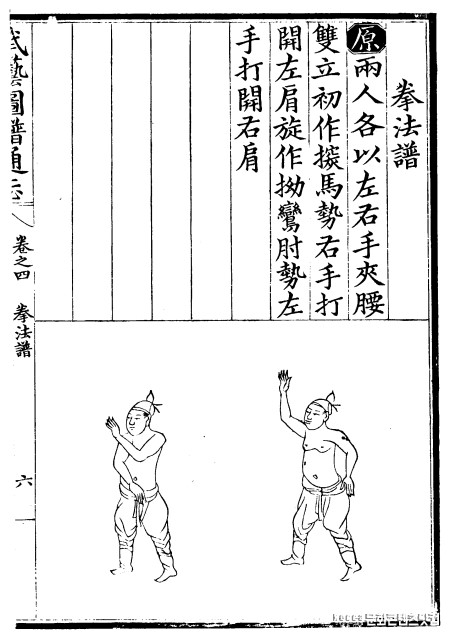 拳法譜
原兩人各以左右手夾腰
雙立初作探馬勢右手打
開左肩旋作拗鸞肘勢左
手打開右肩
武藝圖譜通志
卷之四
拳法譜
六